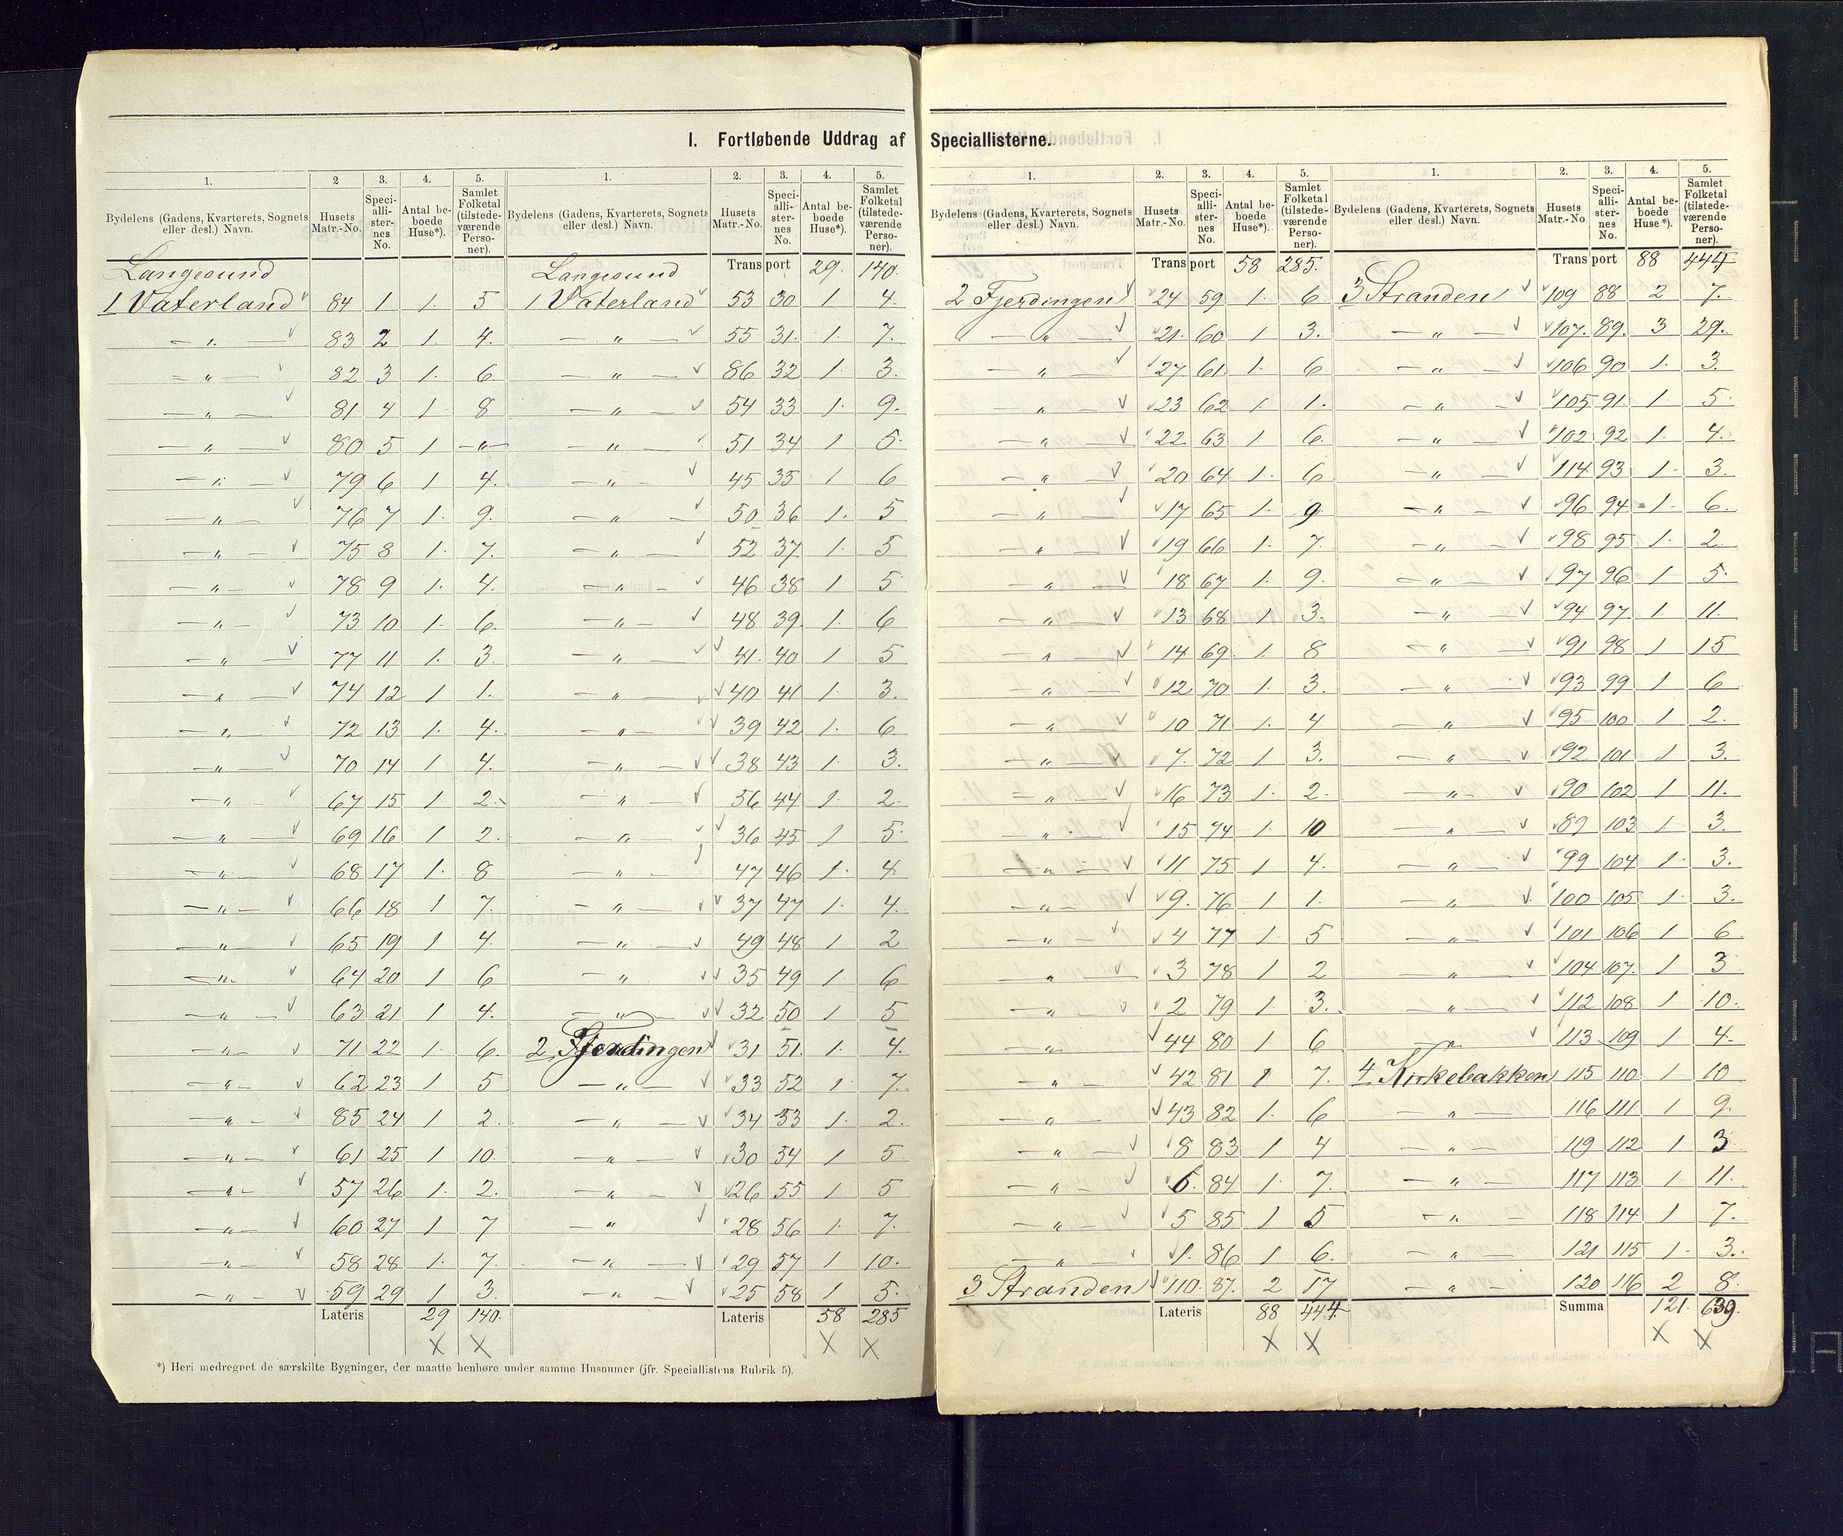 I. Fortløbende Uddrag af Speciallisterne.
1. 2 3. 4. 5. 1. 2. 3. 4. 5.
Bydelens (Gadens, Kvarterets, Sognets eller desl.) Navn. Husets Matr.-No. Speciallisternes No. Antal beboede Huse*). Samlet Folketal (tilstedeværende Personer). Bydelens (Gadens, Kvarterets, Sognets eller desl.) Navn. Husets Matr.-No. Speciallisternes No. Antal beboede Huse*). Samlet Folketal (tilstedeværende Personer).
Langesund Langesund Transport 29. 140.
1 Vaterland 84 1 1. 5 1 Vaterland 53 30 1 4.
— „ — 83 2 1. 4. — „ — 55 31. 1. 7.
— „ — 82 3 1. 6. — „ — 86 32 1. 3.
— „ — 81 4 1. 8 — „ — 54 33 1. 9.
— „ — 80 5 1 —„— — „ — 51 34 1 5.
— „ — 79 6 1 4. — „ — 45 35 1 6
— „ — 76 7 1. 9. — „ — 50 36 1. 5
— „ — 75 8 1. 7. — „ — 52 37. 1. 5
— „ — 78 9 1. 4. — „ — 46 38 1 5
— „ — 73 10 1. 6. — „ — 48 39. 1. 6
— „ — 77 11 1. 3. — „ — 41. 40 1 5
— „ — 74 12 1 1. — „ — 40 41 1. 3.
— „ — 72 13 1. 4. — „ — 39 42 1. 6
— „ — 70 14 1 4. — „ — 38 43 1. 3.
— „ — 67 15 1 2. — „ — 56 44 1. 2.
— „ — 69 16 1 2. — „ — 36 45 1 5.
— „ — 68 17 1. 8 — „ — 47 46 1. 4
— „ — 66 18 1 7. — „ — 37 47 1. 4.
— „ — 65 19 1 4. — „ — 49 48 1 2
— „ — 64 20 1 6 — „ 35 49 1. 6
— „ — 63 21 1 4. — „ — 32 50 1 5
— „ — 71 22 1. 6 2 Fjerdingen 31 51. 1. 4.
— „ — 62 23 1 5 — „ — 33 52 1 7.
— „ — 85 24 1 2. — „ — 34 53 1 2.
— „ — 61 25 1 10. — „ — 30 54 1 5
— „ — 57 26 1. 2. — „ — 26 55 1 5
— „ — 60 27 1 7 — „ 28 56 1. 7.
— „ — 58 28 1. 7. — „ — 29 57 1 10.
— „ — 59 29 1 3. — „ — 25 58 1 5.
Lateris 29 140. Lateris 58 285
*) Heri medregnet de særskilte Bygninger, der maatte henhøre under samme Husnumer (jfr. Speciallistens Rubrik 5).
1. 2. 3. 4. 5. 1. 2. 3. 4. 5.
Bydelens (Gadens, Kvarterets, Sognets eller desl.) Navn. Husets Matr.-No. Speciallisternes No. Antal beboede Huse*). Samlet Folketal (tilstedeværende Personer). Bydelens (Gadens, Kvarterets, Sognets eller desl.) Navn. Husets Matr.-No. Speciallisternes No. Antal beboede Huse*). Samlet Folketal (tilstedeværende Personer).
Transport 58 285. Transport 88 444
2 Fjerdingen 24 59 1. 6 3 Stranden 109 88 2 7.
— „ — 21. 60 1 3. — „ — 107. 89. 3 29.
— „ — 27 61 1. 6 — „ — 106 90 1. 3.
— „ — 23 62 1. 1. — „ — 105 91 1 5.
— „ — 22 63 1 6. — „ — 102 92 1. 4.
— „ — 20 64 1. 6 — „ — 114 93 1. 3.
— „ — 17 65 1. 9 — „ — 96 94 1. 6.
— „ — 19 66 1. 7. — „ — 98 95 1. 2.
— „ — 18 67 1. 9. — „ — 97 96 1 5.
— „ — 13 68 1 3. — „ — 94 97. 1 11.
— „ — 14 69. 1. 8 — „ — 91 98 1 15
— „ — 12 70 1. 3. — „ — 93 99 1 6
— „ — 10 71. 1. 4 — „ — 95 100 1 2.
— „ — 7. 72 1 3. — „ — 92 101 1 3.
— „ — 16 73 1. 2. — „ — 90 102 1 11.
— „ — 15 74 1. 10 — „ — 89 103 1 3.
— „ — 11 75 1 4. — „ — 99 104 1. 3.
— „ — 9. 76 1 1. — „ — 100 105 1. 3.
— „ — 4 77 1. 5 — „ — 101 106 1 6
„ — 3 78 1 2 — „ — 104 107. 1 3
— „ — 2 79 1 3. — „ — 112 108 1 10.
„ 44 80 1 6 — „ — 113 109 1 4.
„ 42 81 1 7. 4 Kirkebakken 115 110 1 10
„ 43 82 1. 6 — „ — 116 111 1 9.
— „ — 8 83 1 4 — „ — 119 112 1 3
— „ — 6. 84 1. 7. — „ — 117 113 1 11.
— „ — 5 85 1 5 — „ — 118 114 1 7.
— „ — 1. 86 1 6. — „ — 121 115 1. 3.
3 Stranden 110. 87. 2 17 — „ — 120 116 2 8.
Lateris 88 444 Summa 121. 639.